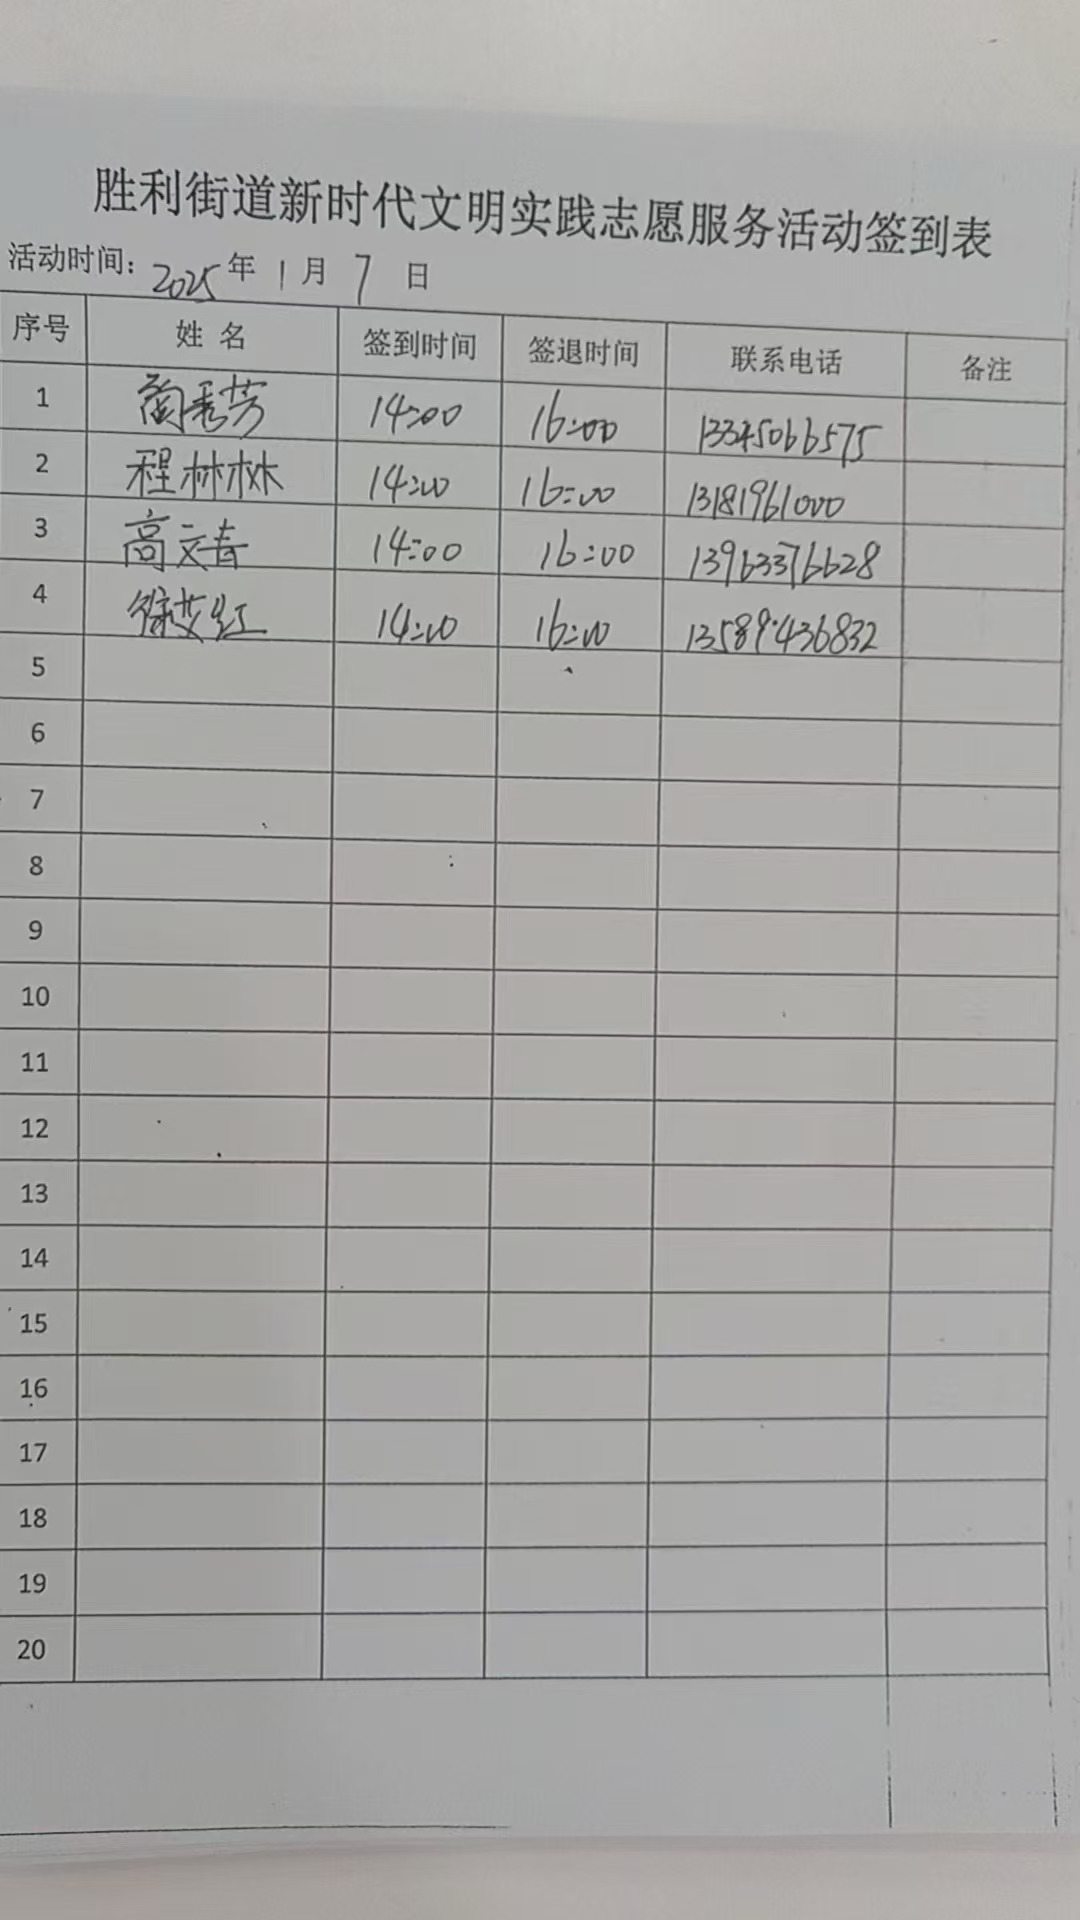 胜利街道新时代文明实践志愿服务活动签到表
活动时间：2025年1月7日
序号 姓名 签到时间 签退时间 联系电话 备注
1 蔺秀芳 14:00 16:00 13345066575
2 程林林 14:00 16:00 13181961000
3 高文春 14:00 16:00 13963376628
4 徐艾红 14:00 16:00 13589436832
5
6
7
8
9
10
11
12
13
14
15
16
17
18
19
20